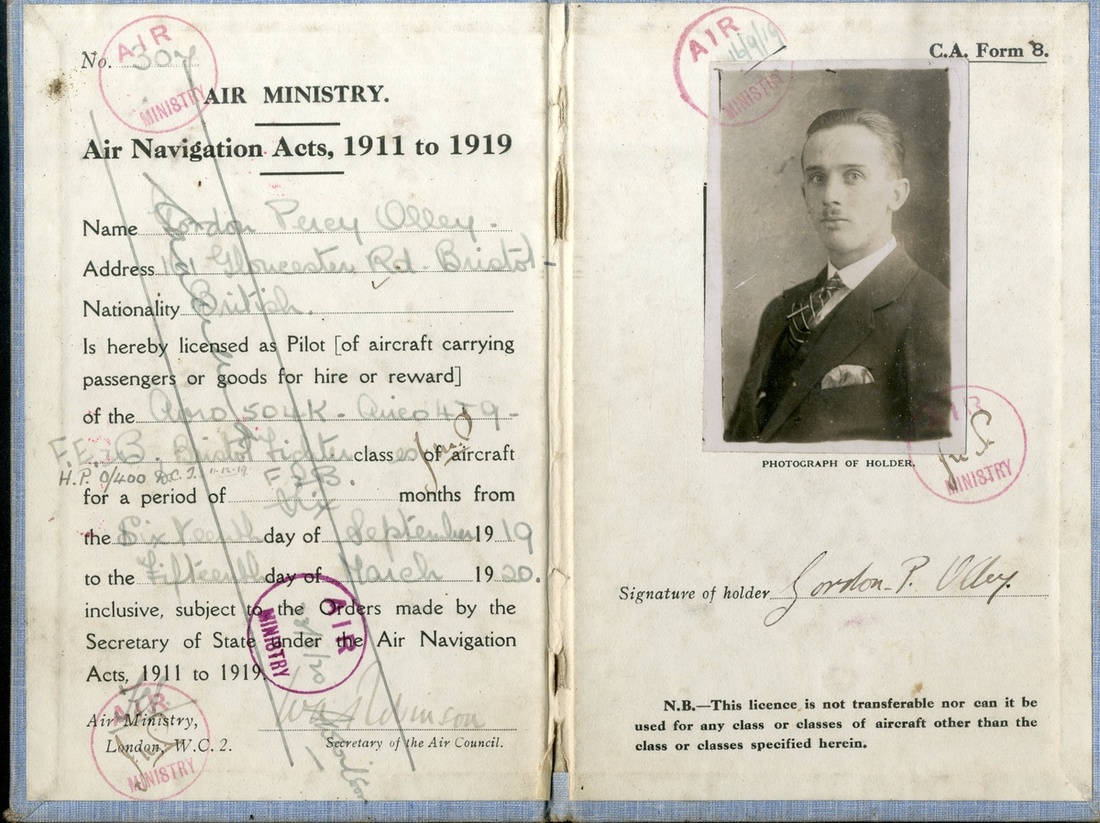 No. 307
AIR MINISTRY
AIR MINISTRY.
Air Navigation Acts, 1911 to 1919
Name Gordon Percy Olley -
Address 161 Gloucester Rd. Bristol -
Nationality British.
Is hereby licensed as Pilot [of aircraft carrying
passengers or goods for hire or reward]
of the Avro 504K - Airco 4 & 9 -
F.E. 2B. Bristol Fighter class es of aircraft
H.P. 0/400 11-12-19. F.2B.
for a period of Six months from
the Sixteenth day of September 19 19
to the Fifteenth day of March 19 20.
inclusive, subject to the Orders made by the
Secretary of State under the Air Navigation
Acts, 1911 to 1919.
AIR MINISTRY
W A Robinson
Air Ministry,
London, W.C. 2.
Secretary of the Air Council.
AIR MINISTRY
AIR MINISTRY
16/9/19
C.A. Form 8.
PHOTOGRAPH OF HOLDER.
AIR MINISTRY
Signature of holder Gordon P. Olley.
N.B.—This licence is not transferable nor can it be
used for any class or classes of aircraft other than the
class or classes specified herein.